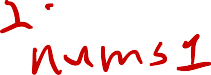 1.
nums1